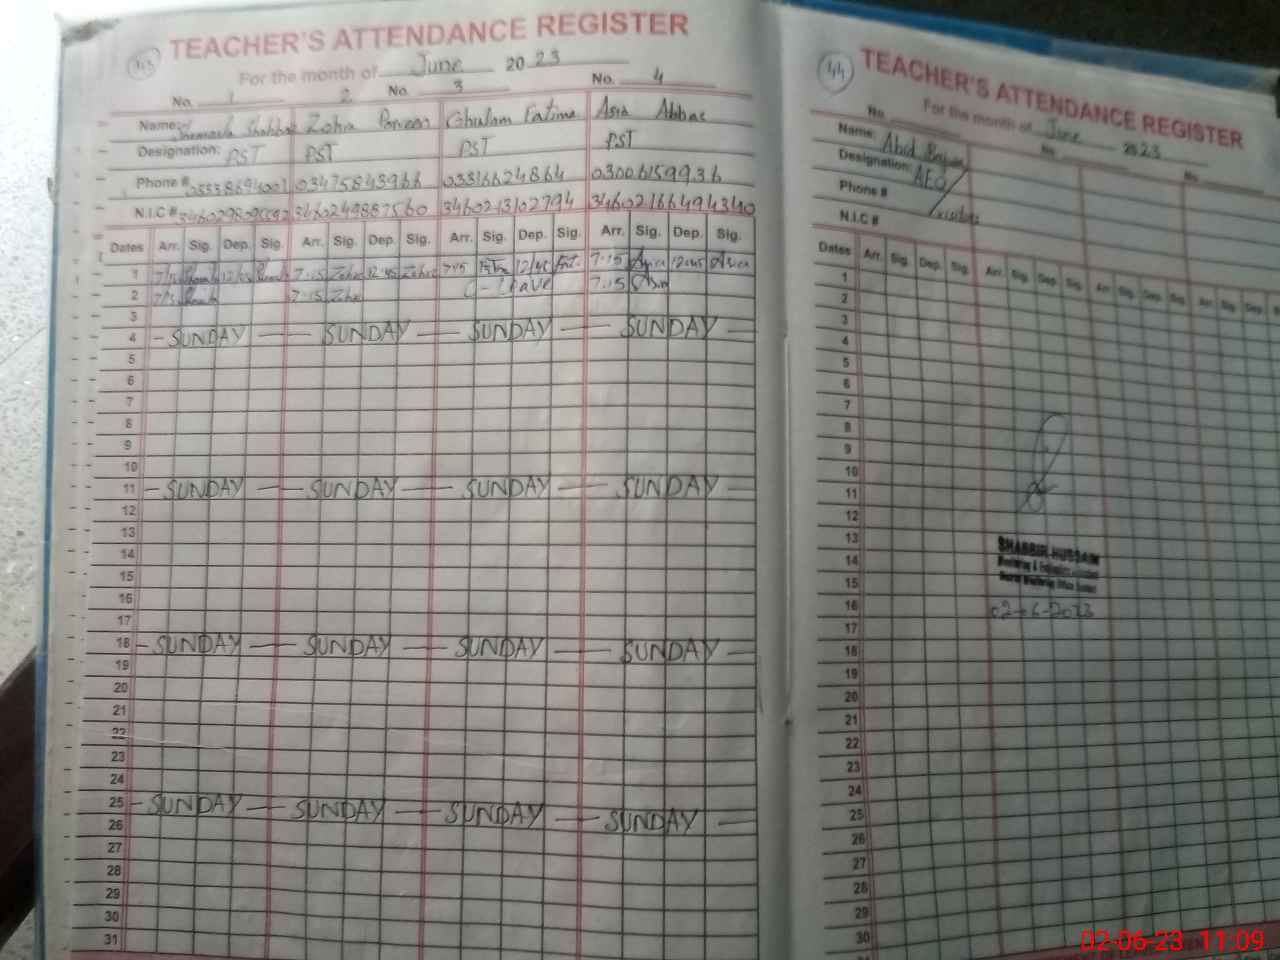 43
TEACHER'S ATTENDANCE REGISTER
For the month of June 2023
No. 1 2 No. 3 No. 4
Name: Shahbaz Zohra Parveen Ghulam Fatima Asia Abbas
Designation: PST PST PST PST
Phone # 03475843966 03316624864 03006159936
N.I.C # 3460249887560 3460213102794 34602166494340
Dates Arr. Sig. Dep. Sig. Arr. Sig. Dep. Sig. Arr. Sig. Dep. Sig. Arr. Sig. Dep. Sig.
1 7/15 12/45 7.15 Zohra 12.45 Zohra 7.15 12/45 Fat. 7.15 Asia 12.45 Asia
2 7/15 7.15 Zohra C-Leave 7.15 Asia
3
4 - SUNDAY — SUNDAY — SUNDAY — SUNDAY —
5
6
7
8
9
10
11 - SUNDAY — SUNDAY — SUNDAY — SUNDAY —
12
13
14
15
16
17
18 - SUNDAY — SUNDAY — SUNDAY — SUNDAY —
19
20
21
22
23
24
25 - SUNDAY — SUNDAY — SUNDAY — SUNDAY —
26
27
28
29
30
31
44
TEACHER'S ATTENDANCE REGISTER
For the month of June 2023
No. No. No.
Name: Abid
Designation: AEO
Phone # visitor
N.I.C #
Dates Arr. Sig. Dep. Sig. Arr. Sig. Dep. Sig. Arr. Sig. Dep.
1
2
3
4
5
6
7
8
9
10
11
12
13
14
15
16
17
18
19
20
21
22
23
24
25
26
27
28
29
30
SHABBIR HUSSAIN
Monitoring & Evaluation
02-06-2023
02-06-23 11:09